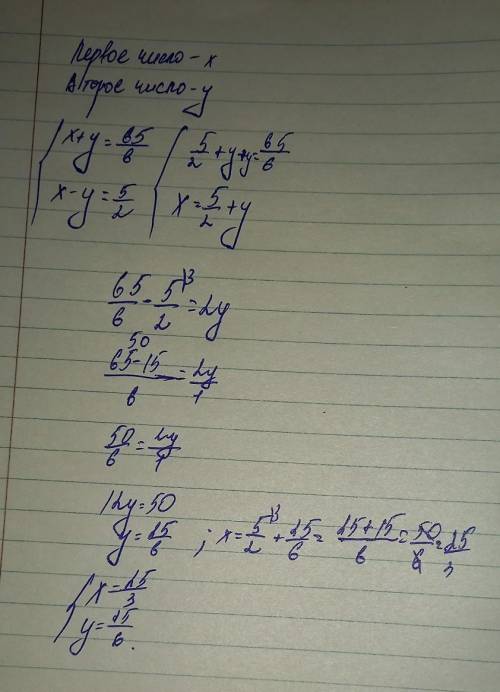 Первое число - x
Второе число - y
{ x+y = 65/6 { 5/2 + y + y = 65/6
x - y = 5/2 x = 5/2 + y
65/6 - 5/2 \3 = 2y
50
65-15/6 = 2y/1
50/6 = 2y/1
12y = 50
y = 25/6 ; x = 5/2 \3 + 25/6 = 25+15/6 = 50/6 = 25/3
{ x = 25/3
y = 25/6.